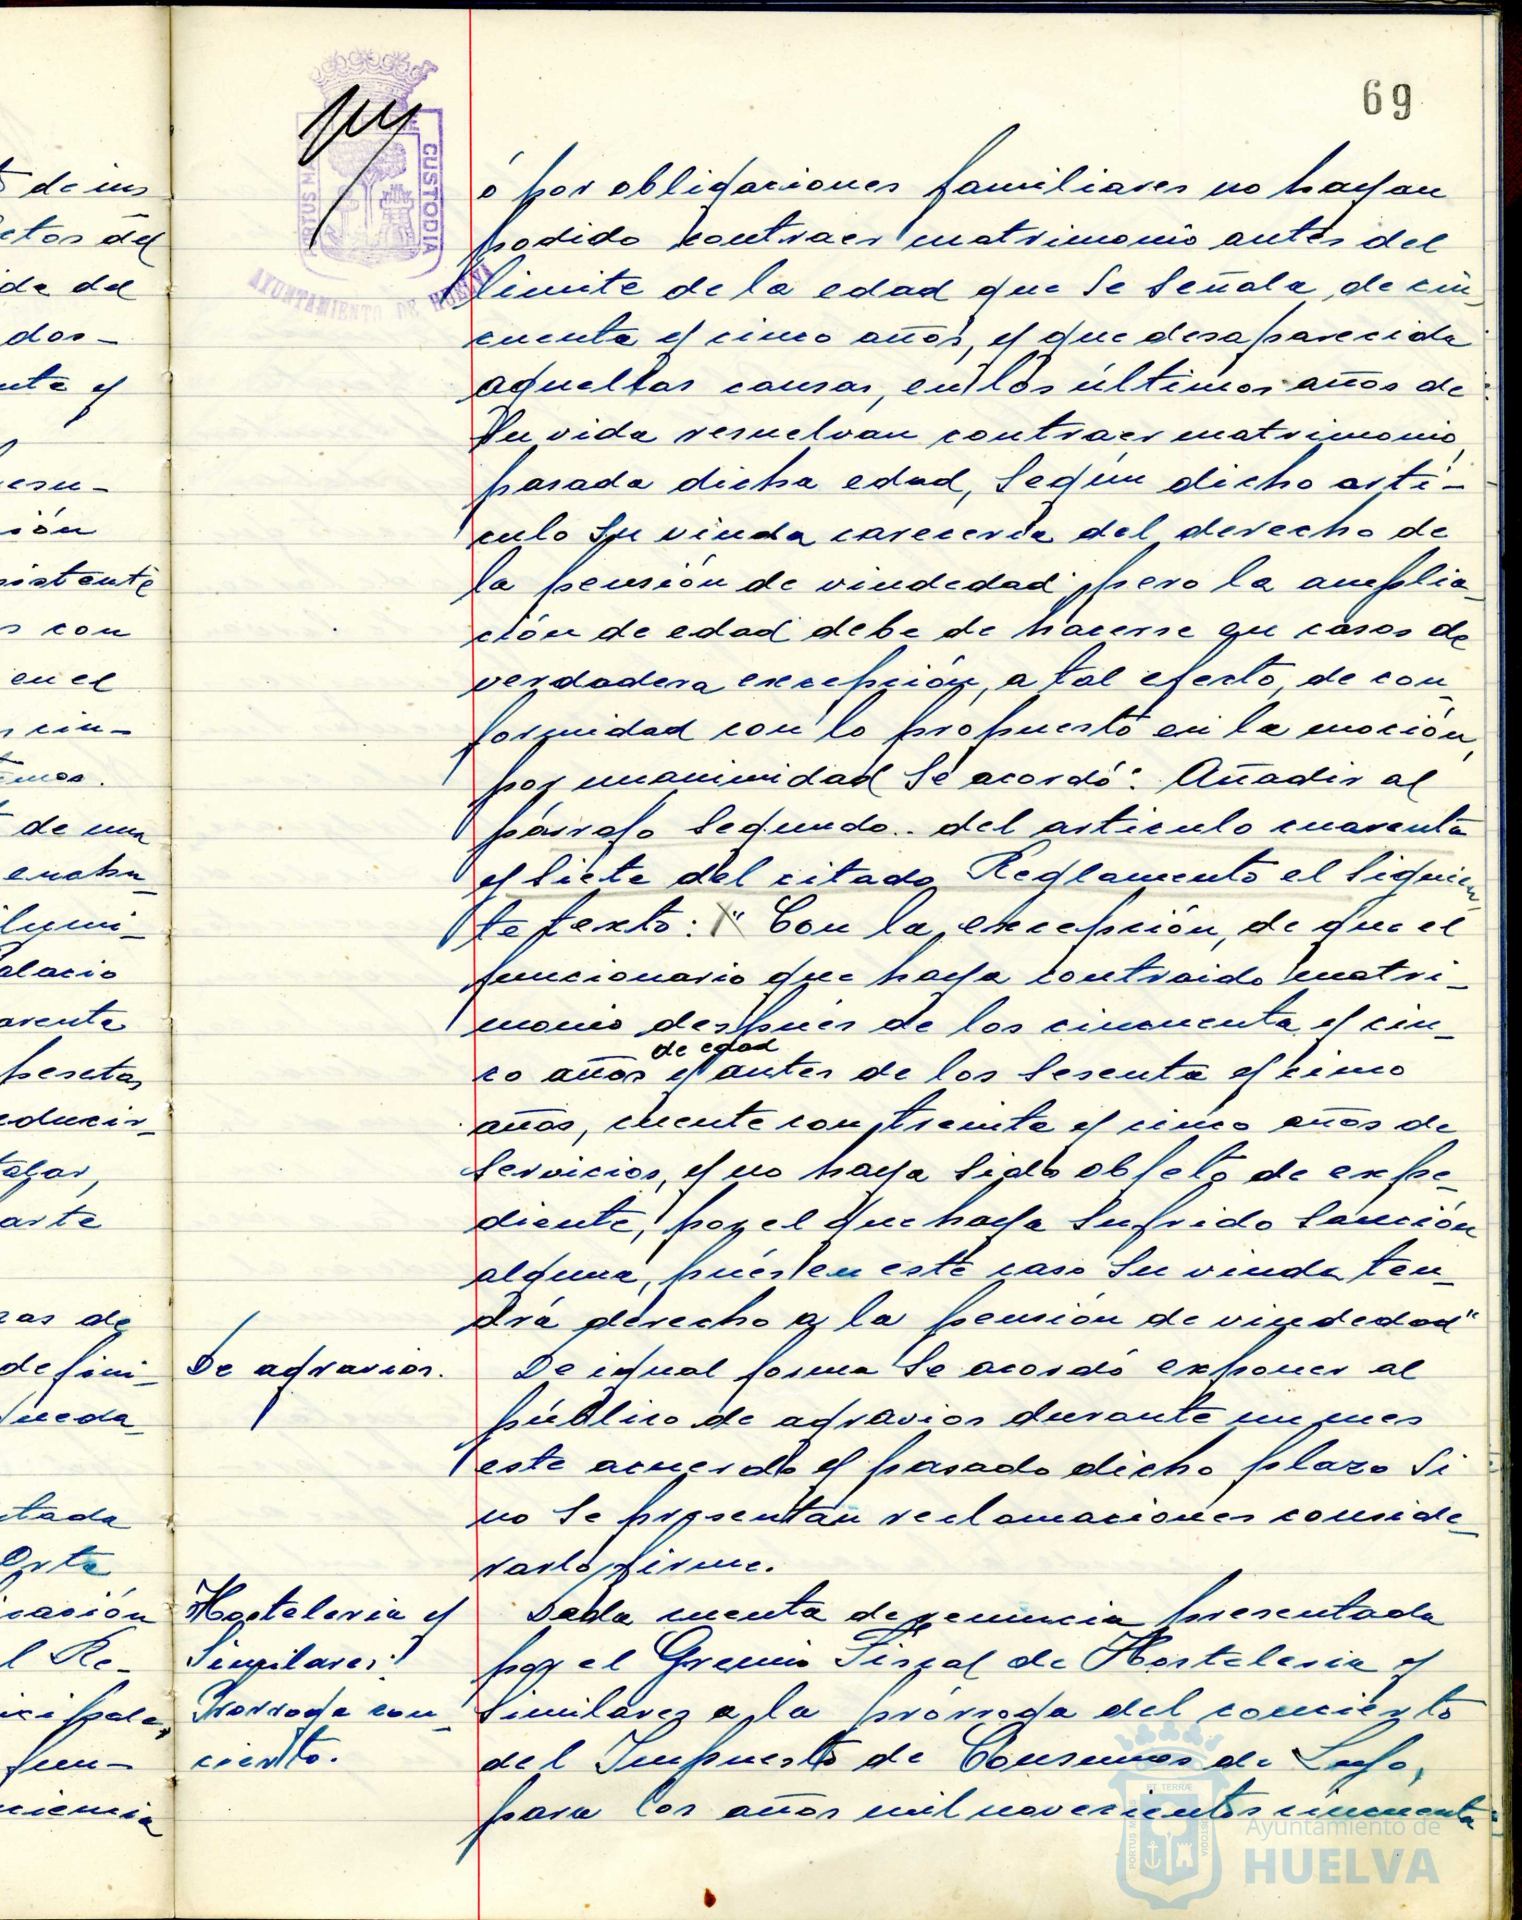 69
PORTUS MA
CUSTODIA
AYUNTAMIENTO DE HUELVA
ó por obligaciones familiares no hayan
podido contraer matrimonio antes del
limite de la edad que se señala, de cin_
cuenta y cinco años, y que desaparecida
aquellas causas, en los últimos años de
su vida resuelvan contraer matrimonio,
pasada dicha edad, según dicho artí-
culo su viuda carecería del derecho de
la pensión de viudedad; pero la amplia_
ción de edad debe de hacerse en casos de
verdadera excepción, a tal efecto, de con_
formidad con lo propuesto en la moción,
por unanimidad se acordó: Añadir al
párrafo segundo.. del articulo cuarenta
y siete del citado Reglamento el siguien_
te texto: "Con la excepción, de que el
funcionario que haya contraido matri_
monio después de los cincuenta y cin_
de edad
co años y antes de los sesenta y cinco
años, cuente con treinta y cinco años de
servicios, y no haya sido objeto de expe_
diente, por el que haya sufrido sanción
alguna, pués en este caso su viuda ten_
drá derecho a la pensión de viudedad"
De agravios.
De igual forma se acordó exponer al
público de agravios durante un mes
este acuerdo y pasado dicho plazo si
no se presentan reclamaciones conside_
rarlo firme.
Hostelería y
Similares:
Prorroga con_
cierto.
Dada cuenta de renuncia presentada
por el Gremio Fiscal de Hostelería y
Similares a la prórroga del concierto
del Impuesto de Consumos de Lujo,
para los años mil novecientos cincuenta
t de ins
ctos del
ida del
dos_
nta y
resu_
sión
sistente
s con
en el
s cin_
timos.
t de una
enchu_
ilumi_
alacio
arenta
pesetas
educir_
talar,
arte
zas de
defini_
queda_
tada
Orta
icación
l Re_
icipales,
fun_
ciencia
Ayuntamiento de
HUELVA